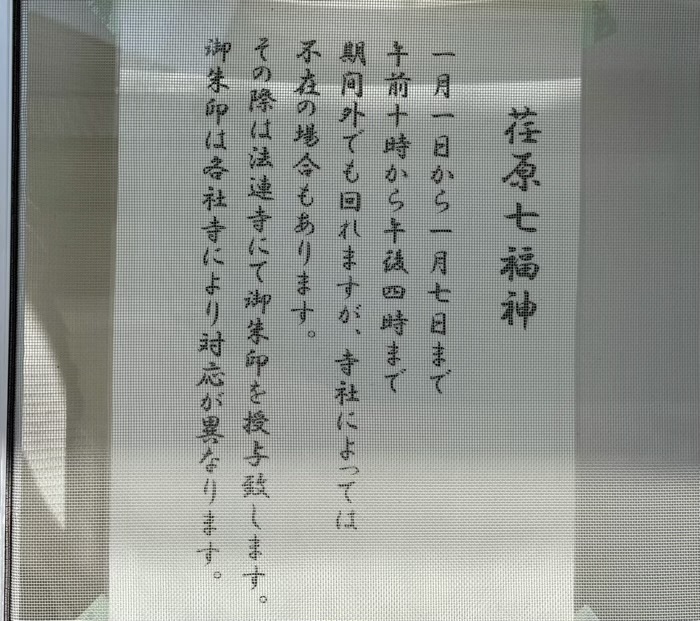 荏原七福神
一月一日から一月七日まで
午前十時から午後四時まで
期間外でも回れますが、寺社によっては
不在の場合もあります。
その際は法連寺にて御朱印を授与致します。
御朱印は各社寺により対応が異なります。